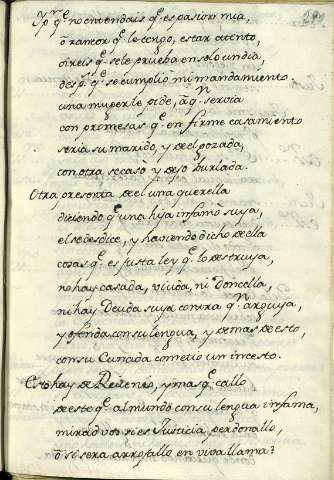 Y pr̃ q̃ no entendais q̃ es pasion mia,
ò rancor q̃ le tengo, estar atento,
oireis q̃ se le prueba en solo un dia,
desp̃. q̃ se cumpliò mi mandamiento
una muger le pide, à q̃ servia
con promesas q̃ en firme casamiento
seria su marido, y de el gozada,
con otra se casò, y dejò burlada.
Otra presenta de el una querella
diciendo q̃ una hija infamò suya,
el se desdice, y haviendo dicho de ella
cosas q̃ es justa ley q̃ lo destruya,
no hay casada, viuda, ni Doncella,
ni hay Deuda suya contra q̃ n arguya,
y ofenda con su lengua, y demas de esto,
con su Cuñada cometiò un incesto.
Esto hay de Revenio, y mas q̃ callo
de este q̃ al mundo con su lengua infama,
mirad vos si es Justicia perdonallo,
ò si sera arrojallo en viva llama?